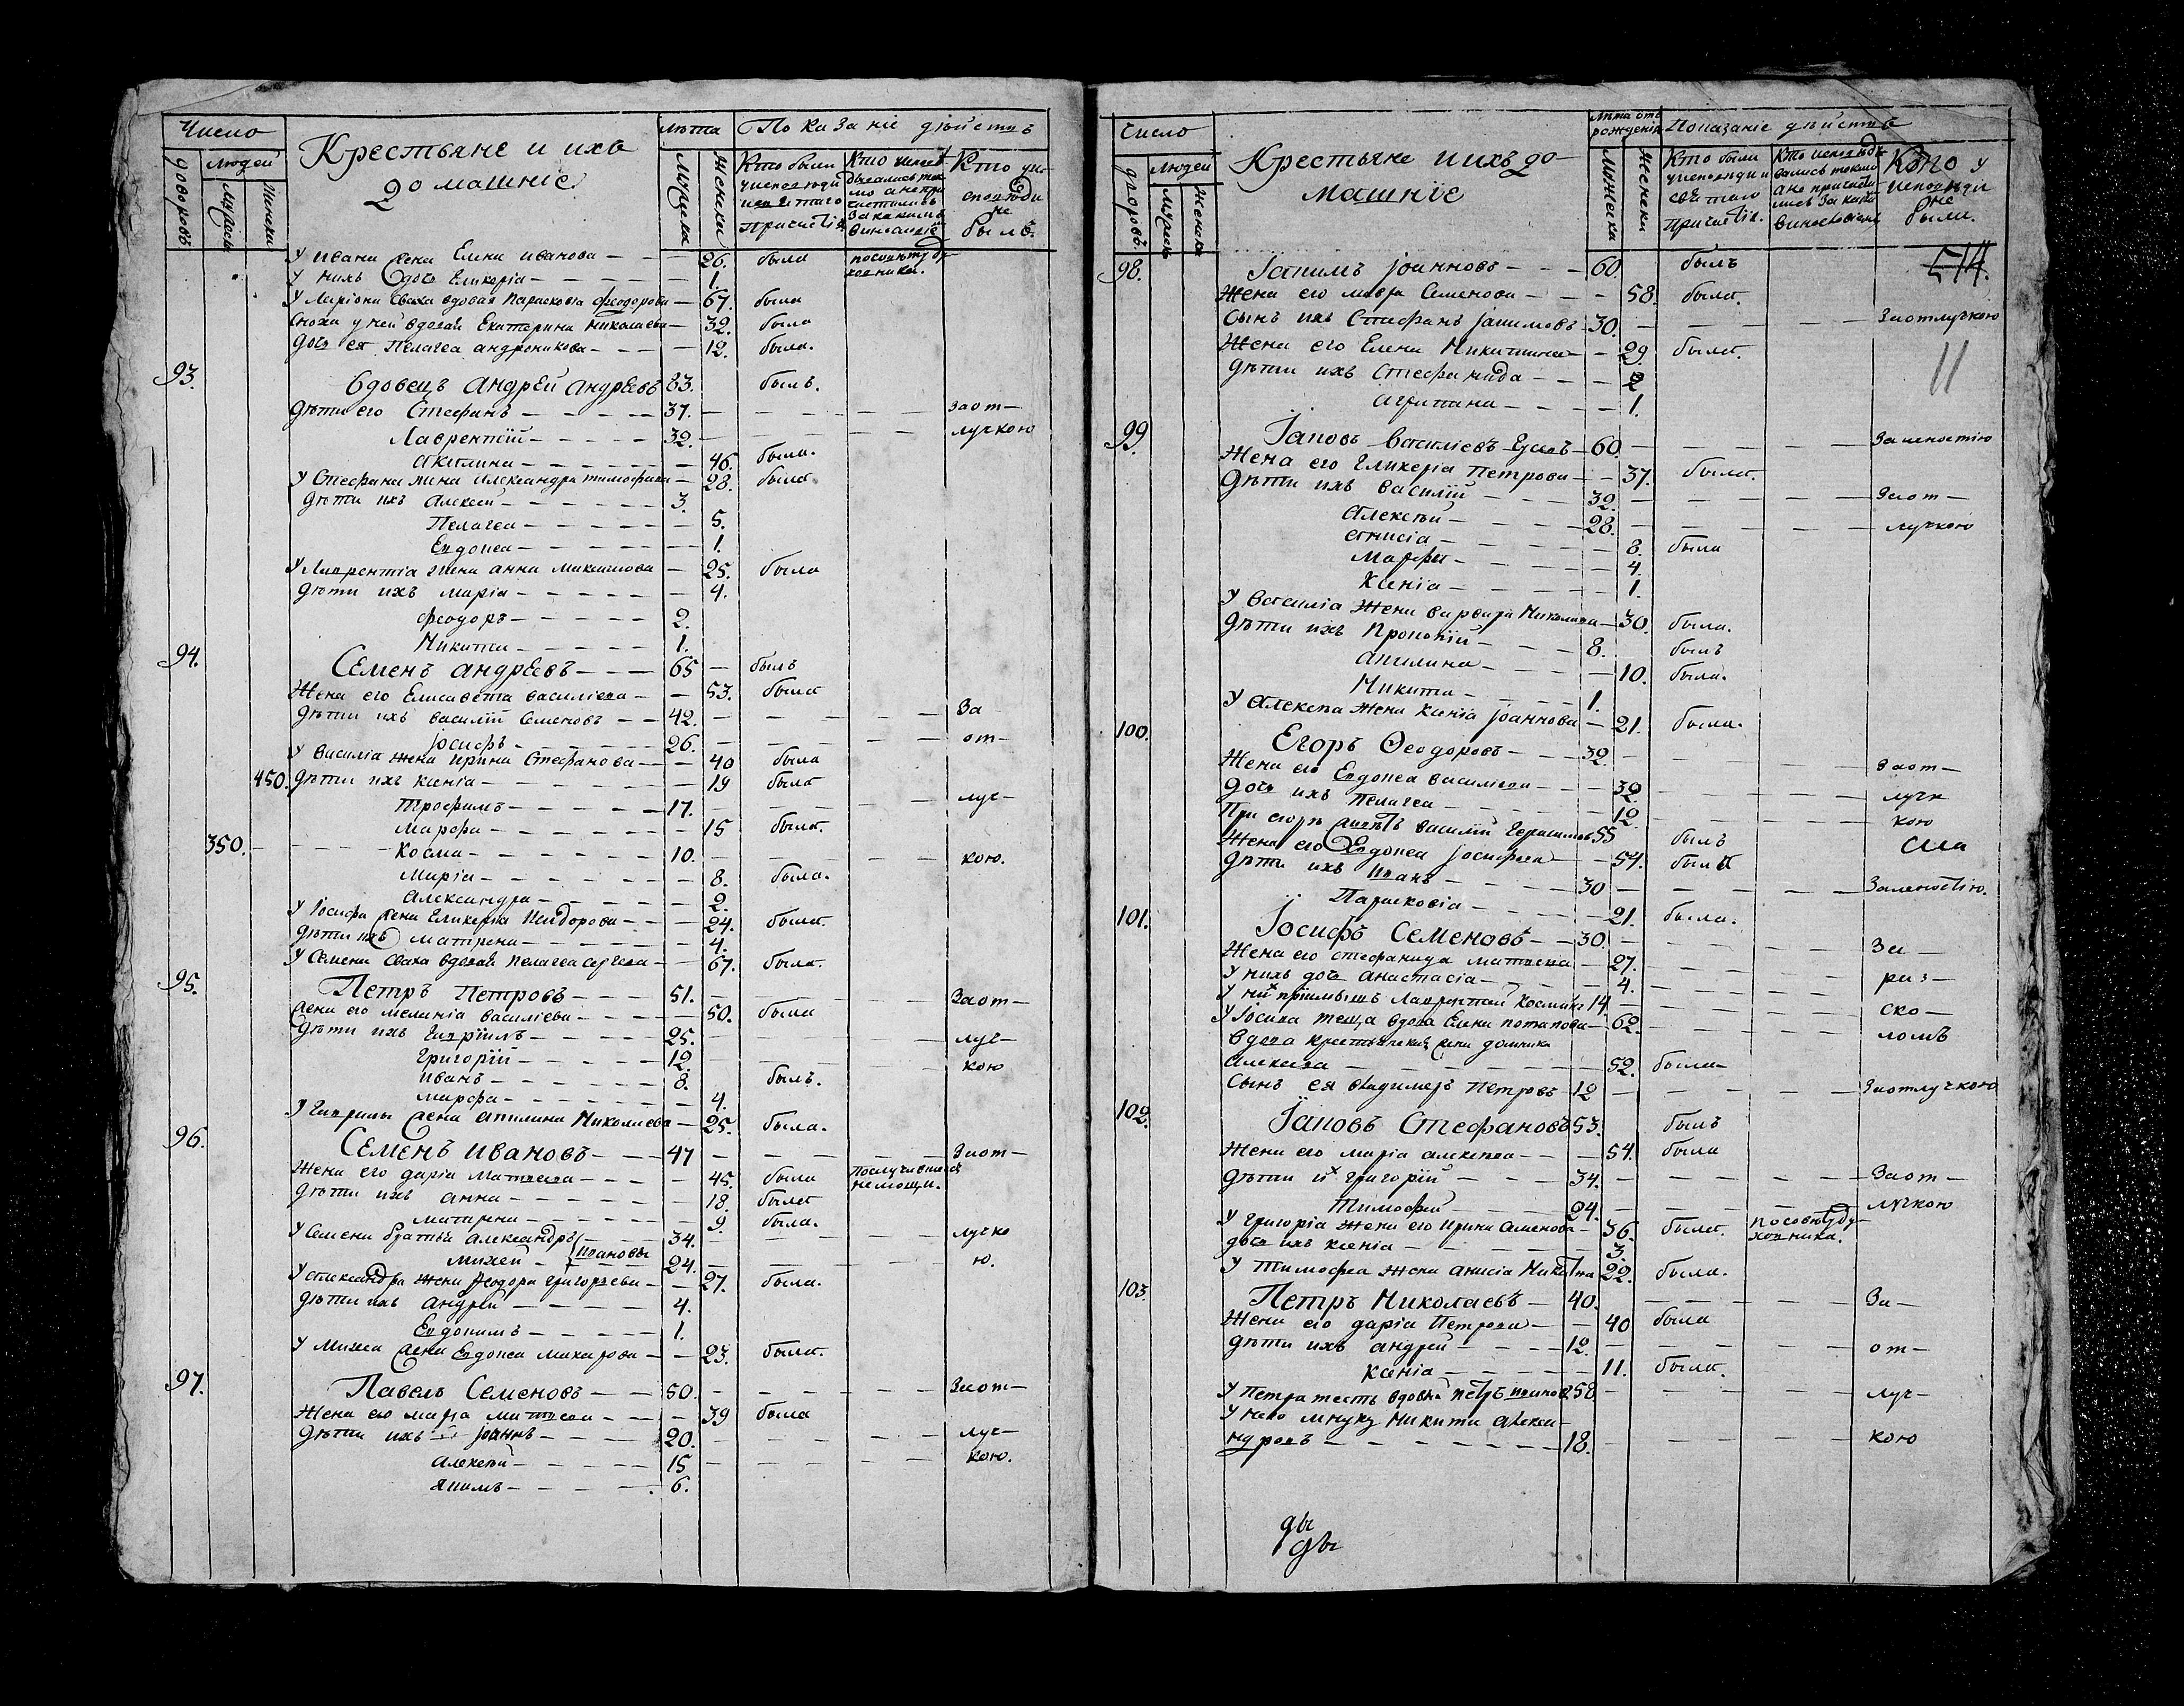 Число
Людей
Дворовъ
Мужеска
Женска
Крестьяне и ихъ
домашніе
Лѣта
Мужска
Женска
Показаніе дѣйствъ
Кто были
у исповѣди
и святаго
причастія
Кто исповѣ
дывались ток
мо а не при
чистились
За какимъ
винословіе
Кто у ис
повѣди
не
былъ.
У Ивана жена Елена Иванова — — — 26. была по совѣту ду
У нихъ дочь Гликерія — — — — 1. ховника.
У Ларіона сваха вдовая Парасковіа Феодорова — 67. была
Сноха у ней вдовая Екатерина Николаева — 32. была
Дочь ея Пелагеа Андроникова — — — 12. была.
93. Вдовецъ Андрей Андреевъ 83. былъ.
Дѣти его Стефанъ — — — — 37. — — — — За от—
Лаврентій — — — — 32. — — — — лучкою
Акилина — — — — 46. была.
У Стефана жена Александра Тимофеева — 28. была
Дѣти ихъ Алексей — — — — 3.
Пелагеа — — — — 5.
Евдокеа — — — — 1.
У Лаврентіа жена Анна Максимова — 25. была
Дѣти ихъ Маріа — — — — 4.
Феодоръ — — — — 2.
Никита — — — — 1.
94. Семенъ Андреевъ — — — 65 — былъ
Жена его Елисавета Василіева — — 53. была
Дѣти ихъ Василій Семеновъ — — 42. — — — — За
Іосифъ — — — — 26. — — — — от—
У Василіа жена Ирина Стефанова — — 40 была
450. Дѣти ихъ Ксеніа — — — — 19 была
Трофимъ — — — — 17. — — — — луч—
Марфа — — — — 15 была.
350. Косма — — — — 10. — — — — кою.
Маріа — — — — 8. была.
Александра — — — — 2.
У Іосифа жена Гликеріа Исидорова — — 24. была.
Дѣти ихъ Матрена — — — — 4.
У Семена сваха вдовая Пелагеа Сергеева — — 67. была.
95. Петръ Петровъ — — — 51. — — — — За от—
Жена его Меланіа Василіева — — — 50. была
Дѣти ихъ Гавріилъ — — — — 25. — — — — луч—
Григорій — — — — 12. — — — — кою
Иванъ — — — — 8. былъ.
Марфа — — — — 4.
У Гавріилы жена Акилина Николаева — 25. была.
96. Семенъ Ивановъ — — — 47 — — — — За от—
Жена его Даріа Матвеева — — — 45. была По случившейся
немощи.
Дѣти ихъ Анна — — — — 18. была
Матрена — — — — 9. была.
У Семена братьа Александръ — — 34. — — — — лучко
Михей — Ивановы — 24. — — — — ю.
У Александра жена Феодора Григорьева — — 27. была.
Дѣти ихъ Андрей — — — — 4.
Евдокимъ — — — — 1.
У Михеа жена Евдокеа Макарова — — 23. была.
97. Павелъ Семеновъ — — 50. — — — — За от—
Жена его Марѳа Матвеева — — — 39 была
Дѣти ихъ Іоаннъ — — — — 20. — — — — луч—
Алексѣй — — — — 15 — — — — кою.
Якимъ — — — — 6.
Число
Людей
Дворовъ.
Мужеска
Женска
Крестьяне и ихъ до-
машніе
Лѣта отъ
рожденія
Мужеска
Женска
Показаніе дѣйствъ
Кто были
у исповѣди и
святаго
причастія.
Кто исповѣды
вались токмо
а не причасти
лись За каки
винословіемъ
Кто у
исповѣди
не
были.
514.
11
98. Іакимъ Іоанновъ — — — 60. былъ
Жена его Мавра Семенова — — — 58. была.
Сынъ ихъ Стефанъ Іакимовъ — 30. — — — — За отлучкою
Жена его Елена Никитина — — 29. была.
Дѣти ихъ Стефанида — — — 2
Агрипина — — — 1.
99. Іаковъ Василіевъ — 60. — — — — За леностію
Жена его Гликеріа Петрова — — 37. была.
Дѣти ихъ Василій — — — 32. — — — — За от—
Алексѣй — — — 28. — — — — лучкою
Анисіа — — — — 8. была
Марфа — — — — 4.
Ксеніа — — — — 1.
У Василіа жена Варвара Николаева — 30. была.
Дѣти ихъ Прокопій — — — 8. былъ
Акилина — — — — 10. была.
Никита — — — 1.
У Алексеа жена Ксеніа Іоаннова — 21. была.
100. Егоръ Ѳеодоровъ — — — 32. — — — — За от—
Жена его Евдокеа Василіева — — — 32. — — — лучк
Дочь ихъ Пелагеа — — — — 12. — — — кою
При егорѣ Василій Герасимовъ 55 былъ
Жена его Евдокеа Іосифова — — 54. была
Дѣти ихъ Иванъ — — — 30 — — — — За леностію.
Парасковіа — — — — 21. была.
101. Іосифъ Семеновъ — — 30. — — — — За—
Жена его Стефанида Матвеева — 27. — — — — раз—
У нихъ дочь Анастасіа — — — 4. — — — — ско—
У них пріимышъ Лаврентій Космин 14 — — — — ломъ
У Іосифа теща вдова Елена Потапова — 62. — — — —
Вдова крестьянская жена Домника
Алексеева — — — — 52. была—
Сынъ ея Владимеръ Петровъ — 12 — — — — За отлучкою
102. Іаковъ Стефановъ 53. былъ
Жена его Маріа Алексеева — — — 54. была
Дѣти их Григорій — — — 34. — — — — За от—
Тимофей — — — 24. — — — — лучкою
У Григоріа жена его Ирина Семенова — 36. была. по совѣту ду-
Дочь ихъ Ксеніа — — — 3. ховника.
У Тимофеа жена Анисіа Никитина 22. была.
103. Петръ Николаевъ — 40. — — — — За—
Жена его Даріа Петрова — — 40 была
Дѣти ихъ Андрей — — — 12. — — — — от—
Ксеніа — — — — 11. была.
У Петра тесть вдовый Петръ Иванов 58 — — — — луч—
У него внукъ Никита Алекса-
ндровъ — — — — 18. — — — — кою